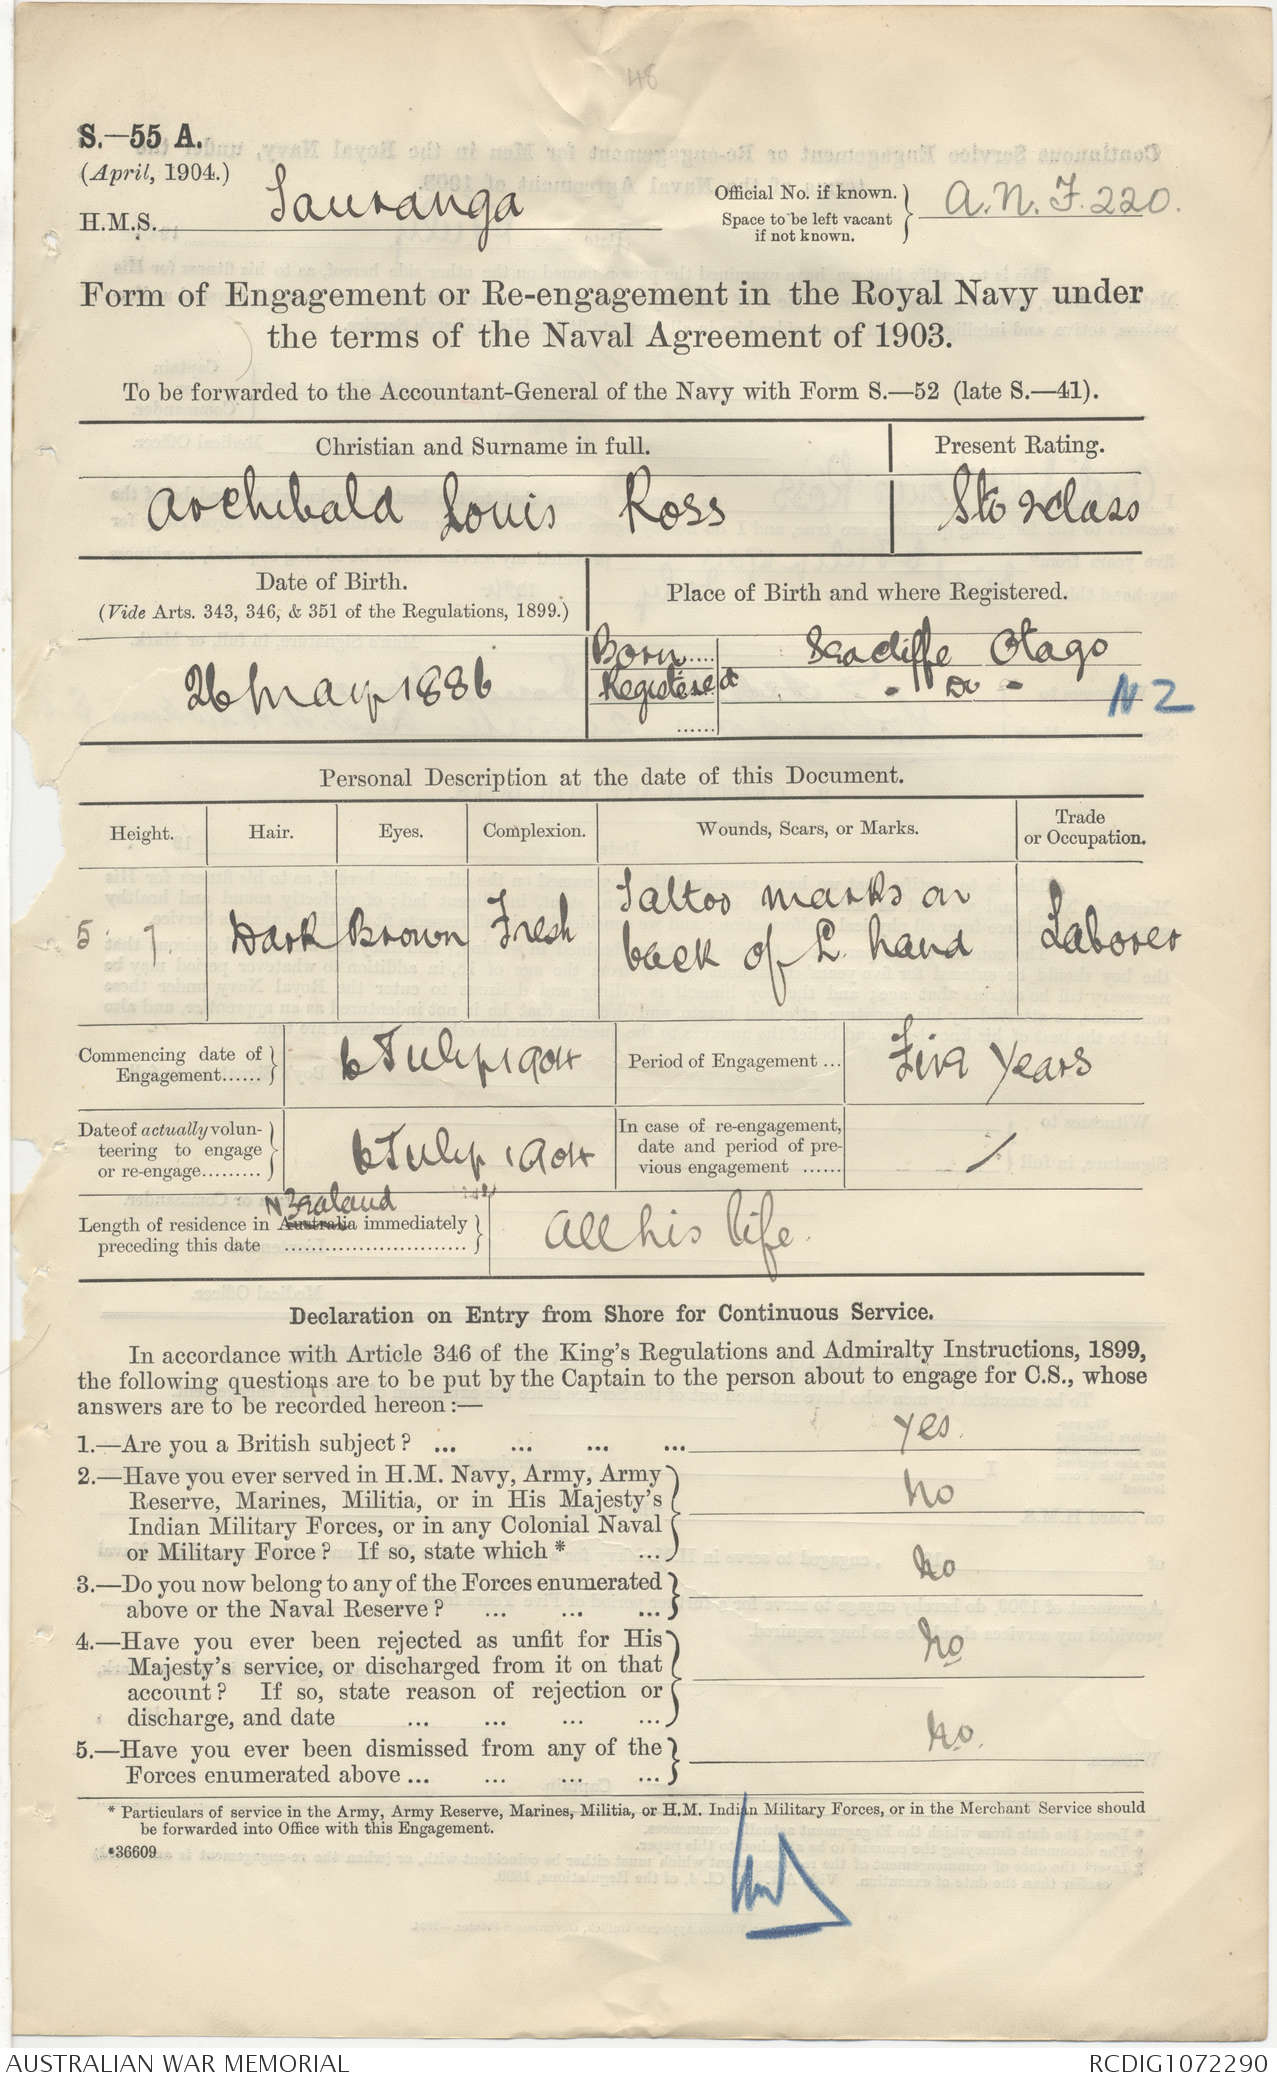 48
S.—55 A.
(April, 1904.)
H.M.S. Tauranga
Official No. if known.
Space to be left vacant
if not known.
A.N.F. 220.
Form of Engagement or Re-engagement in the Royal Navy under
the terms of the Naval Agreement of 1903.
To be forwarded to the Accountant-General of the Navy with Form S.—52 (late S.—41).
Christian and Surname in full.
Present Rating.
Archibald Louis Ross
Sto 2 class
Date of Birth.
(Vide Arts. 343, 346, & 351 of the Regulations, 1899.)
Place of Birth and where Registered.
26 May 1886
Born....
Otago
Registered
- Do -
N Z
......
Personal Description at the date of this Document.
Height.
Hair.
Eyes.
Complexion.
Wounds, Scars, or Marks.
Trade
or Occupation.
5 7
Dark
Brown
Fresh
Tattoo marks on
back of L. hand
Laborer
Commencing date of
Engagement......
6 July 1904
Period of Engagement ...
Five Years
Date of actually volun-
teering to engage
or re-engage.........
6 July 1904
In case of re-engagement,
date and period of pre-
vious engagement ......
/
N Zealand
Length of residence in Australia immediately
preceding this date ..............................
All his life.
Declaration on Entry from Shore for Continuous Service.
In accordance with Article 346 of the King's Regulations and Admiralty Instructions, 1899,
the following questions are to be put by the Captain to the person about to engage for C.S., whose
answers are to be recorded hereon :—
1.—Are you a British subject? ... ... ... ... yes.
2.—Have you ever served in H.M. Navy, Army, Army
Reserve, Marines, Militia, or in His Majesty's
Indian Military Forces, or in any Colonial Naval
or Military Force? If so, state which * ...
no
3.—Do you now belong to any of the Forces enumerated
above or the Naval Reserve? ... ... ...
no
4.—Have you ever been rejected as unfit for His
Majesty's service, or discharged from it on that
account? If so, state reason of rejection or
discharge, and date ... ... ... ...
no
5.—Have you ever been dismissed from any of the
Forces enumerated above ... ... ... ...
no.
* Particulars of service in the Army, Army Reserve, Marines, Militia, or H.M. Indian Military Forces, or in the Merchant Service should
be forwarded into Office with this Engagement.
*36609
AUSTRALIAN WAR MEMORIAL
RCDIG1072290